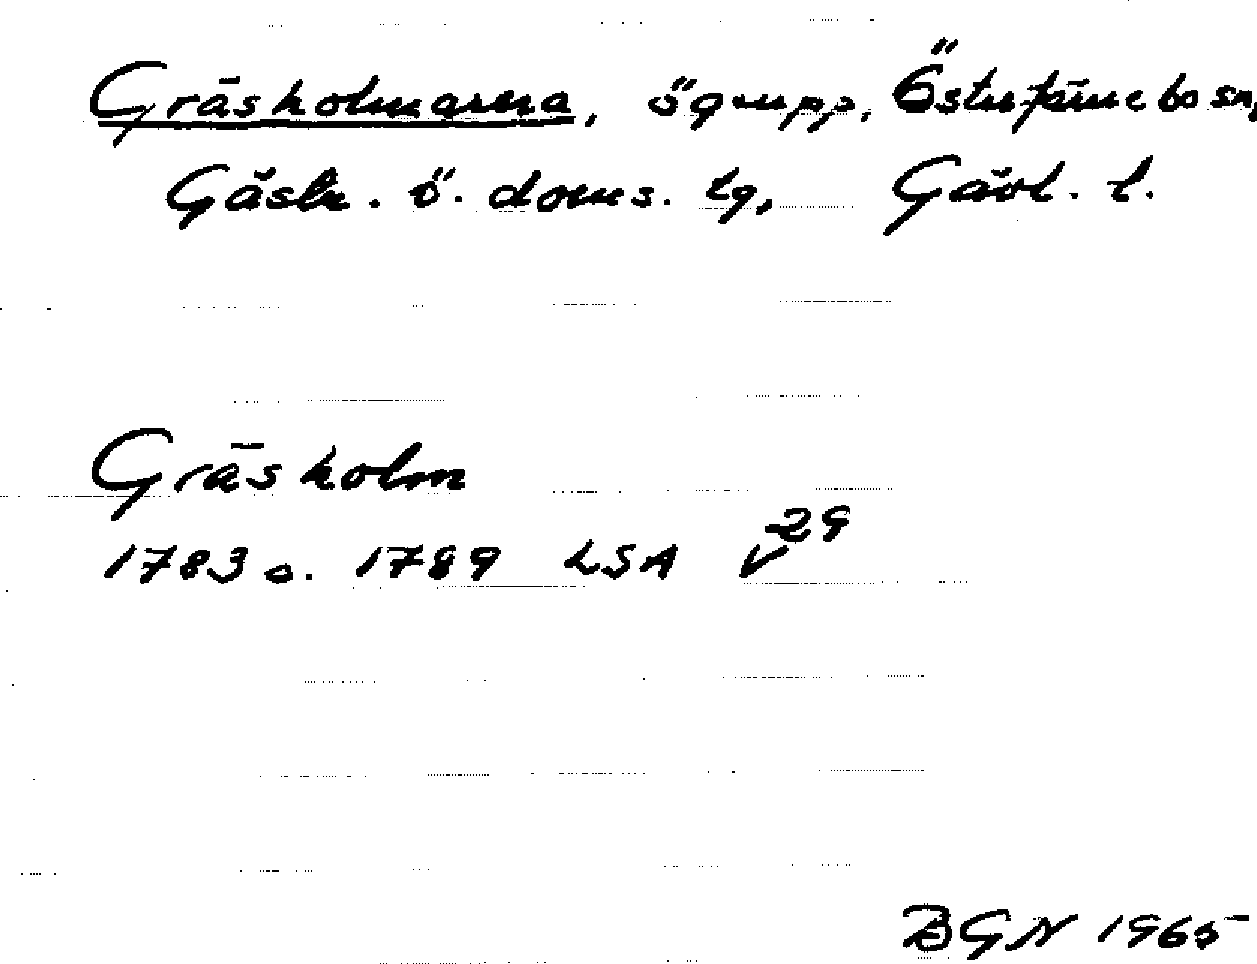 Gräsholmarna, ögrupp, Österfärnebo sn,
Gästr. ö. doms. tg, Gävl. l.
Gräsholm
1783 o. 1789 LSA V 29
BGN 1965